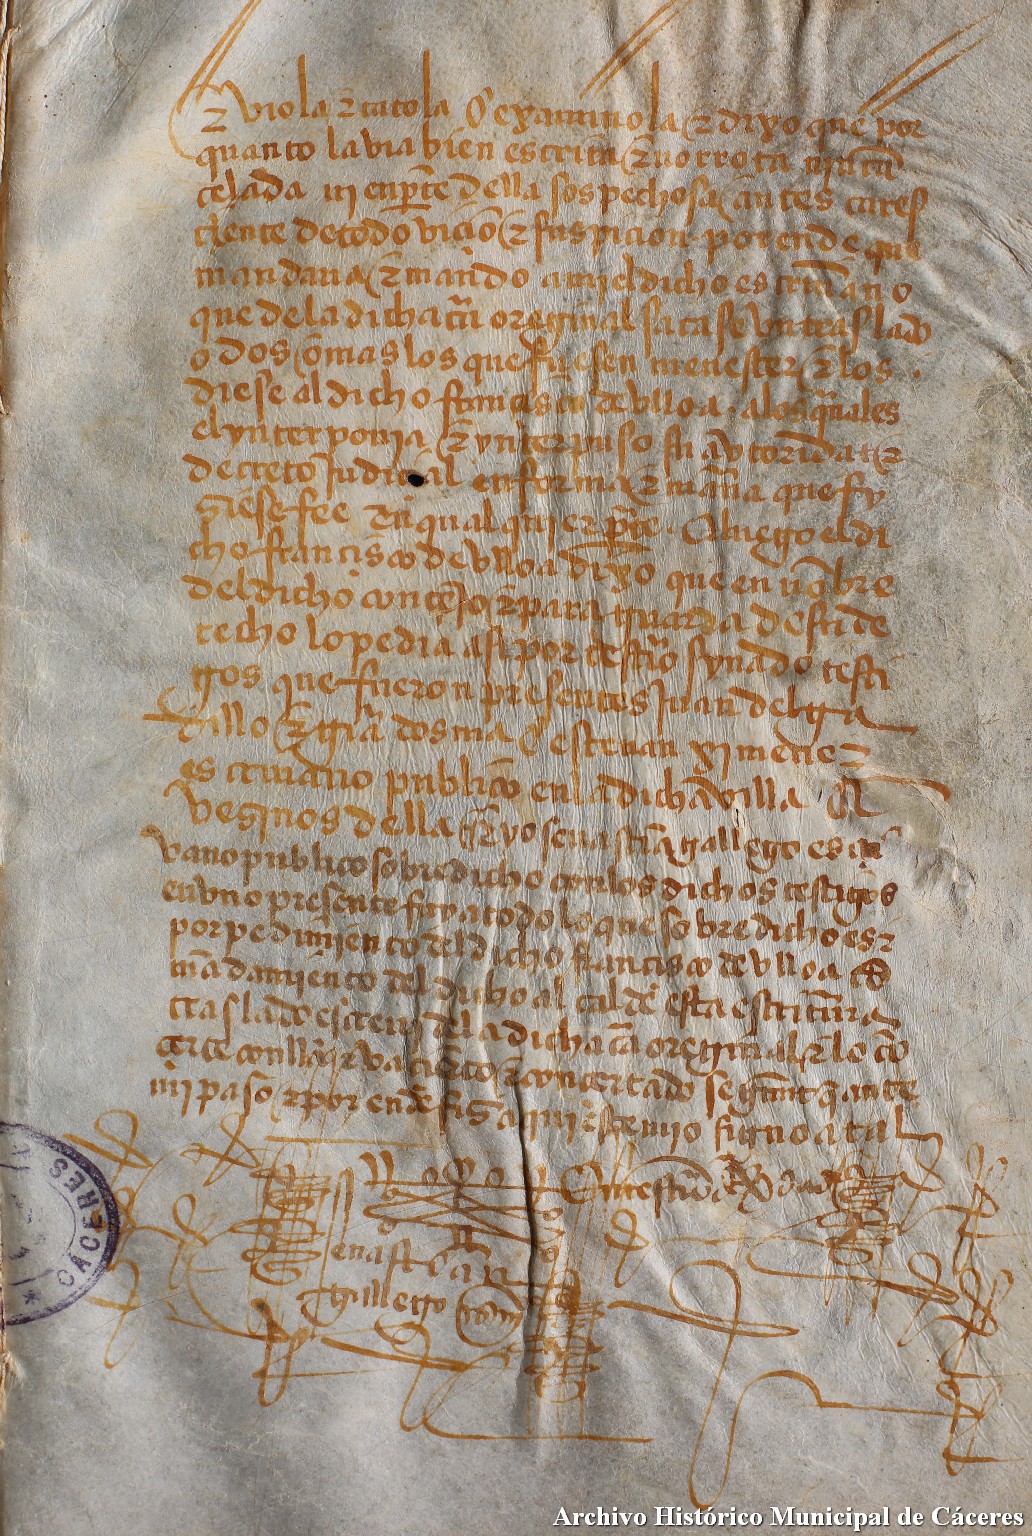 τ viola τ catola τ exsaminola τ dixo que por
quanto la via bien escrita τ no rrota nin can
celada ni en pte della sospechosa antes cares
ciente de todo viçio τ suspiçion por ende que
mandava τ mando a mi el dicho escrivano
que de la dicha ca oreginal sacase un traslado
o dos o mas los que fuesen menester τ los
diese al dicho françisco de ulloa a los quales
el ynterponia τ ynterpuso su avtoridad τ
decreto judiçial en forma τ manera que fy
ziese fee en qualquier pte E luego el di
cho françisco de ulloa dixo que en nonbre
del dicho conçejo τ para guarda de su de
recho lo pedia asi por testimo synado testi
gos que fueron presentes juan delga
dillo τ garçia dosma τ estevan ximenez
escrivano publico en la dicha villa
vezinos della τ yo sevastian gallego escri
vano publico sobre dicho con los dichos testigos
en uno presente fuy a todo lo que sobre dicho es τ
por pedimiento del dicho françisco de ulloa τ
mādamiento del dicho alcalde esta escritura
traslado escrevi de la dicha ca oreginal τ lo con
certe con ella τ va çierto τ conçertado segunt que ante
mi paso τ por ende fiz aqui este mio sygno a tal
en testimo de verdad
sevastian
gallego
CÁCERES
Archivo Histórico Municipal de Cáceres